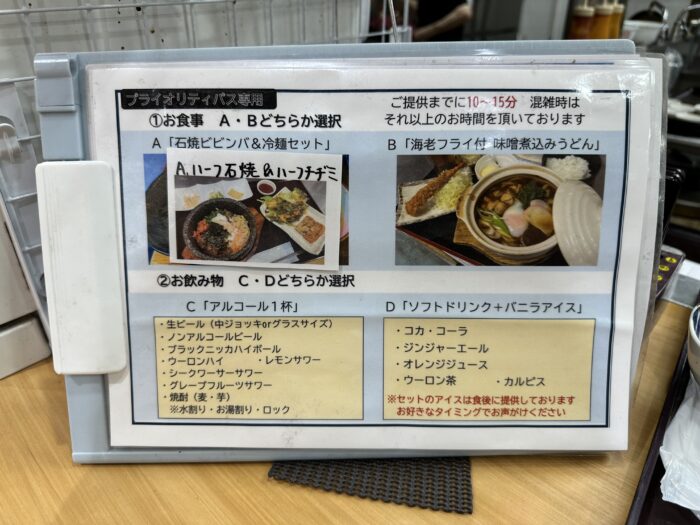 プライオリティパス専用
①お食事 A・Bどちらか選択
ご提供までに10～15分 混雑時は
それ以上のお時間を頂いております
A「石焼ビビンバ&冷麺セット」
A.ハーフ石焼&ハーフチヂミ
B「海老フライ付 味噌煮込みうどん」
②お飲み物 C・Dどちらか選択
C「アルコール1杯」
・生ビール（中ジョッキorグラスサイズ）
・ノンアルコールビール
・ブラックニッカハイボール
・ウーロンハイ ・レモンサワー
・シークワーサーサワー
・グレープフルーツサワー
・焼酎（麦・芋）
※水割り・お湯割り・ロック
D「ソフトドリンク+バニラアイス」
・コカ・コーラ
・ジンジャーエール
・オレンジジュース
・ウーロン茶 ・カルピス
※セットのアイスは食後に提供しております
お好きなタイミングでお声がけください